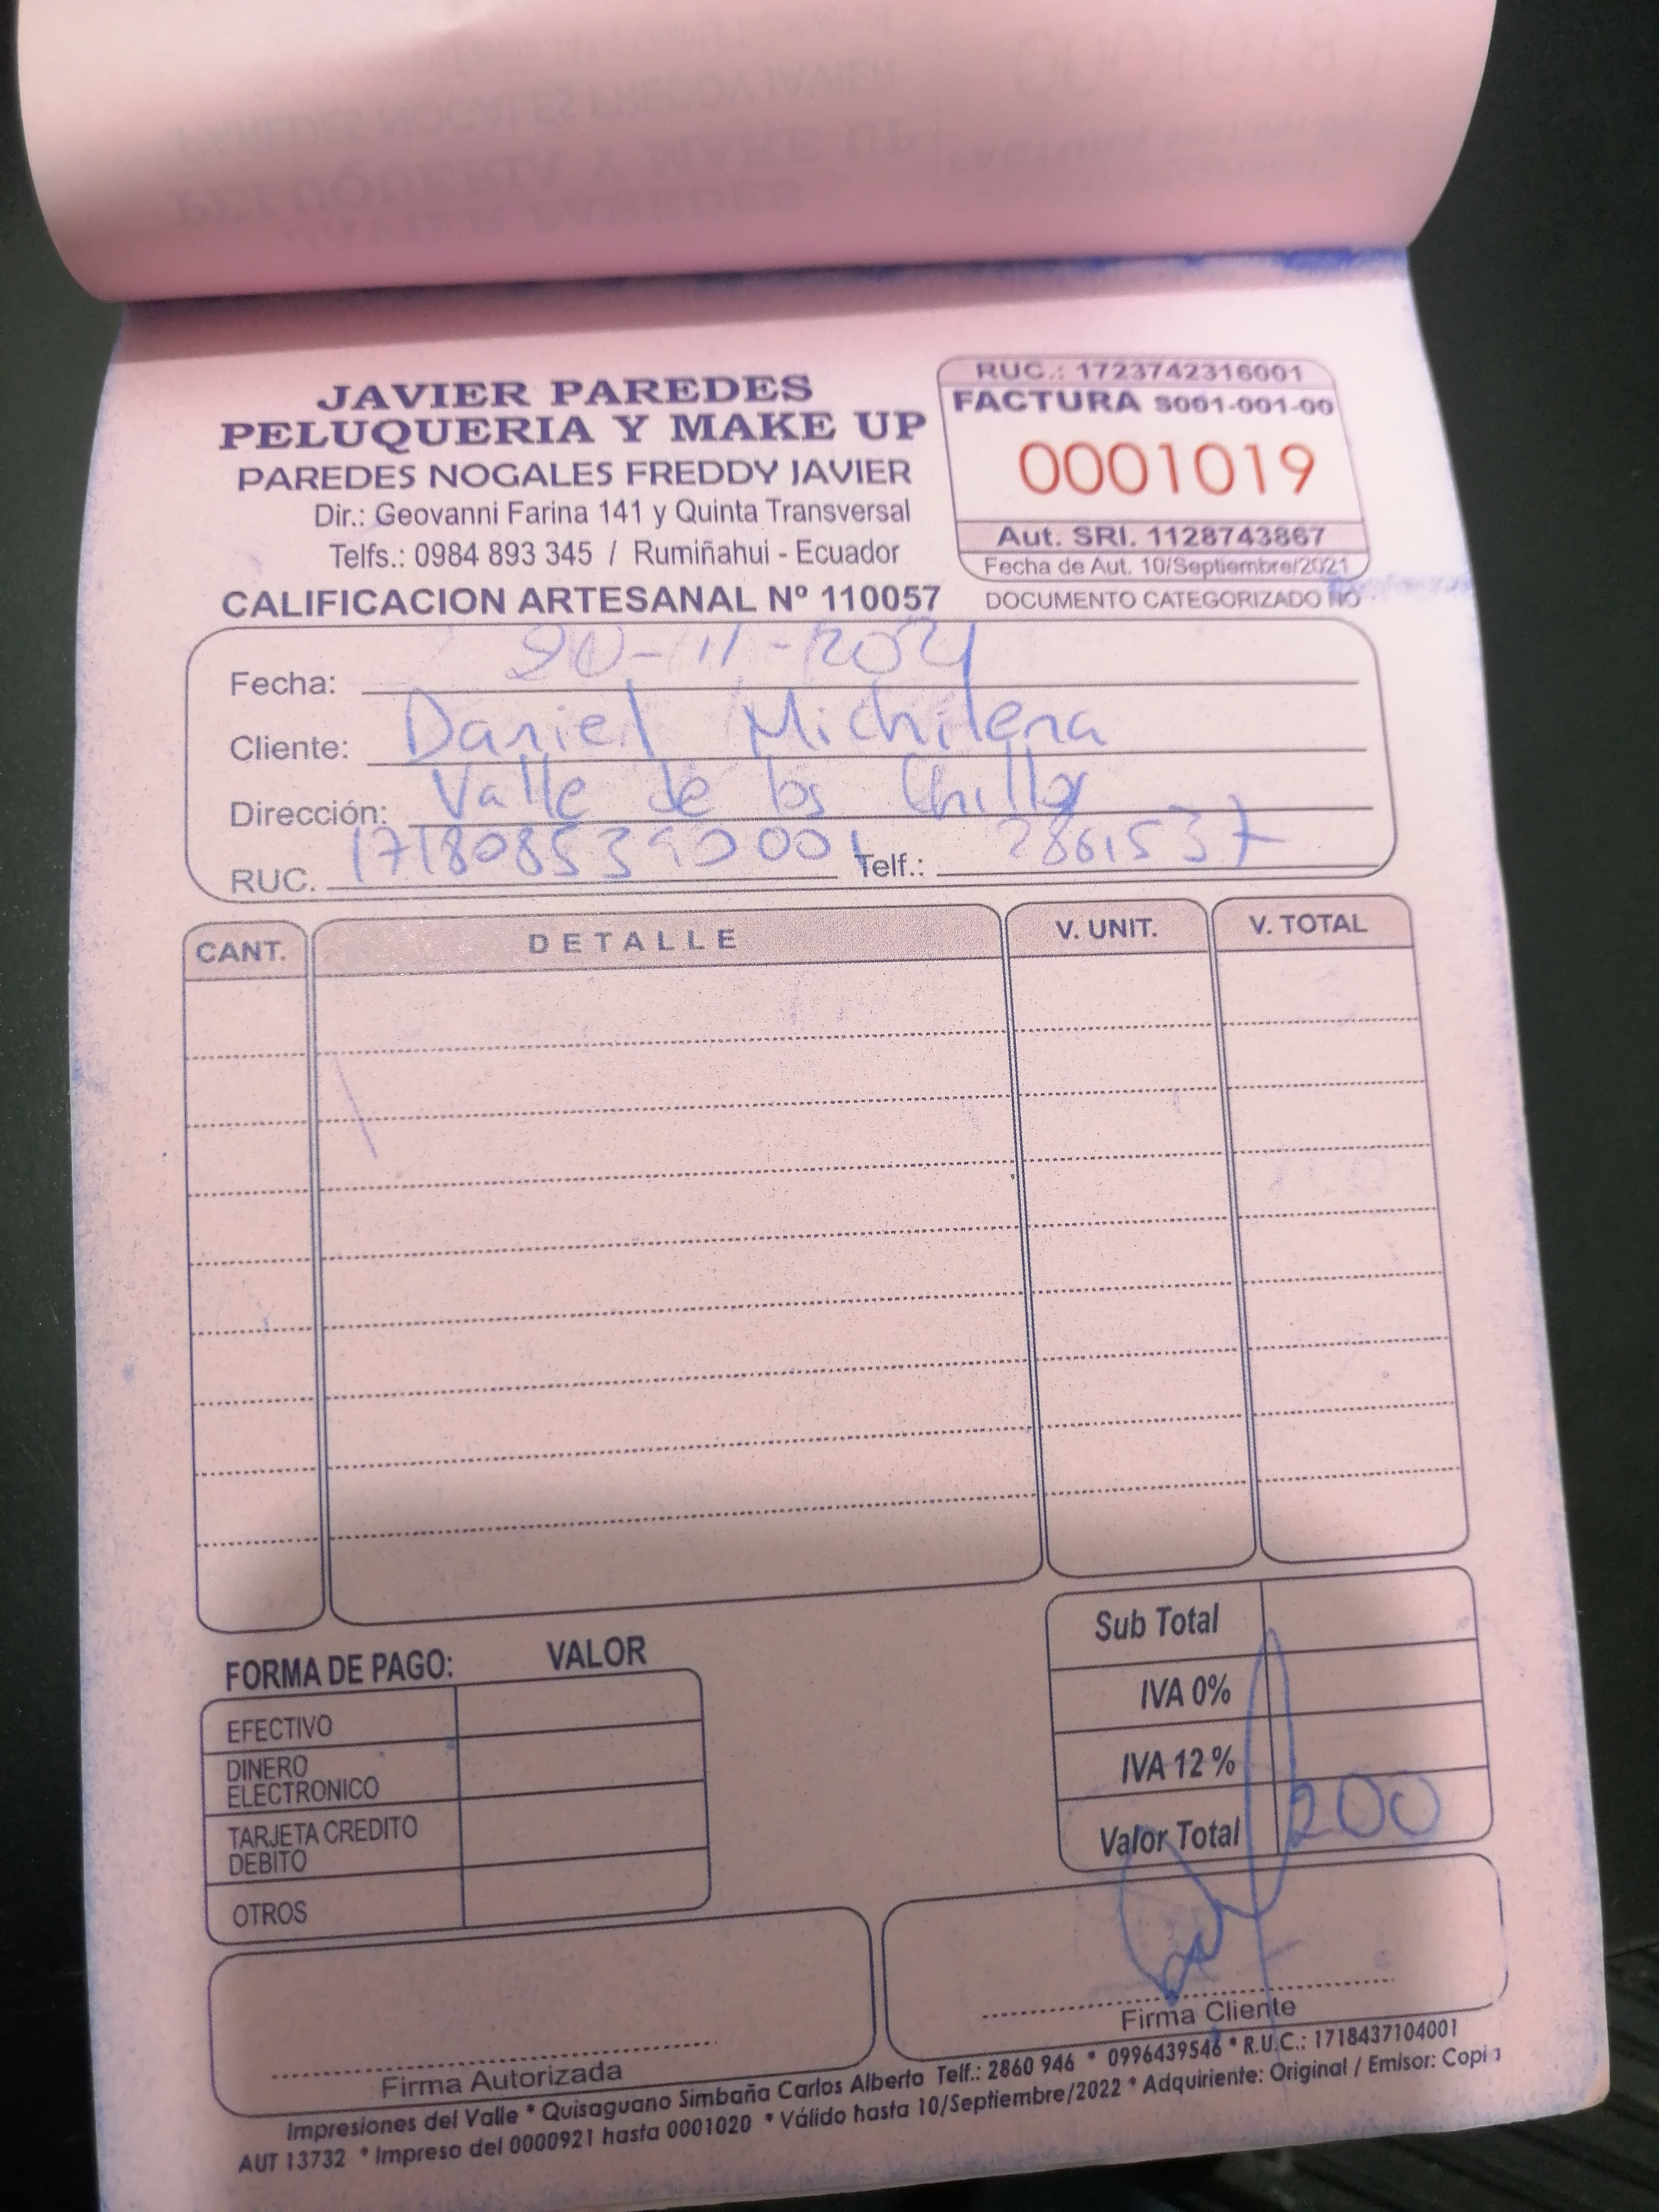 JAVIER PAREDES
PELUQUERIA Y MAKE UP
PAREDES NOGALES FREDDY JAVIER
Dir.: Geovanni Farina 141 y Quinta Transversal
Telfs.: 0984 893 345 / Rumiñahui - Ecuador
CALIFICACION ARTESANAL Nº 110057
RUC.: 1723742316001
FACTURA S001-001-00
0001019
Aut. SRI. 1128743867
Fecha de Aut. 10/Septiembre/2021
DOCUMENTO CATEGORIZADO NO
Fecha: 20-11-2021
Cliente: Daniel Michilena
Dirección: Valle de los Chillos
RUC. Telf.: 2861537
CANT. DETALLE V. UNIT. V. TOTAL
Sub Total
IVA 0%
IVA 12 %
Valor Total 200
FORMA DE PAGO: VALOR
EFECTIVO
DINERO
ELECTRONICO
TARJETA CREDITO
DEBITO
OTROS
Firma Autorizada
Firma Cliente
Impresiones del Valle * Quisaguano Simbaña Carlos Alberto Telf.: 2860 946 * 0996439546 * R.U.C.: 1718437104001
AUT 13732 * Impreso del 0000921 hasta 0001020 * Válido hasta 10/Septiembre/2022 * Adquiriente: Original / Emisor: Copia